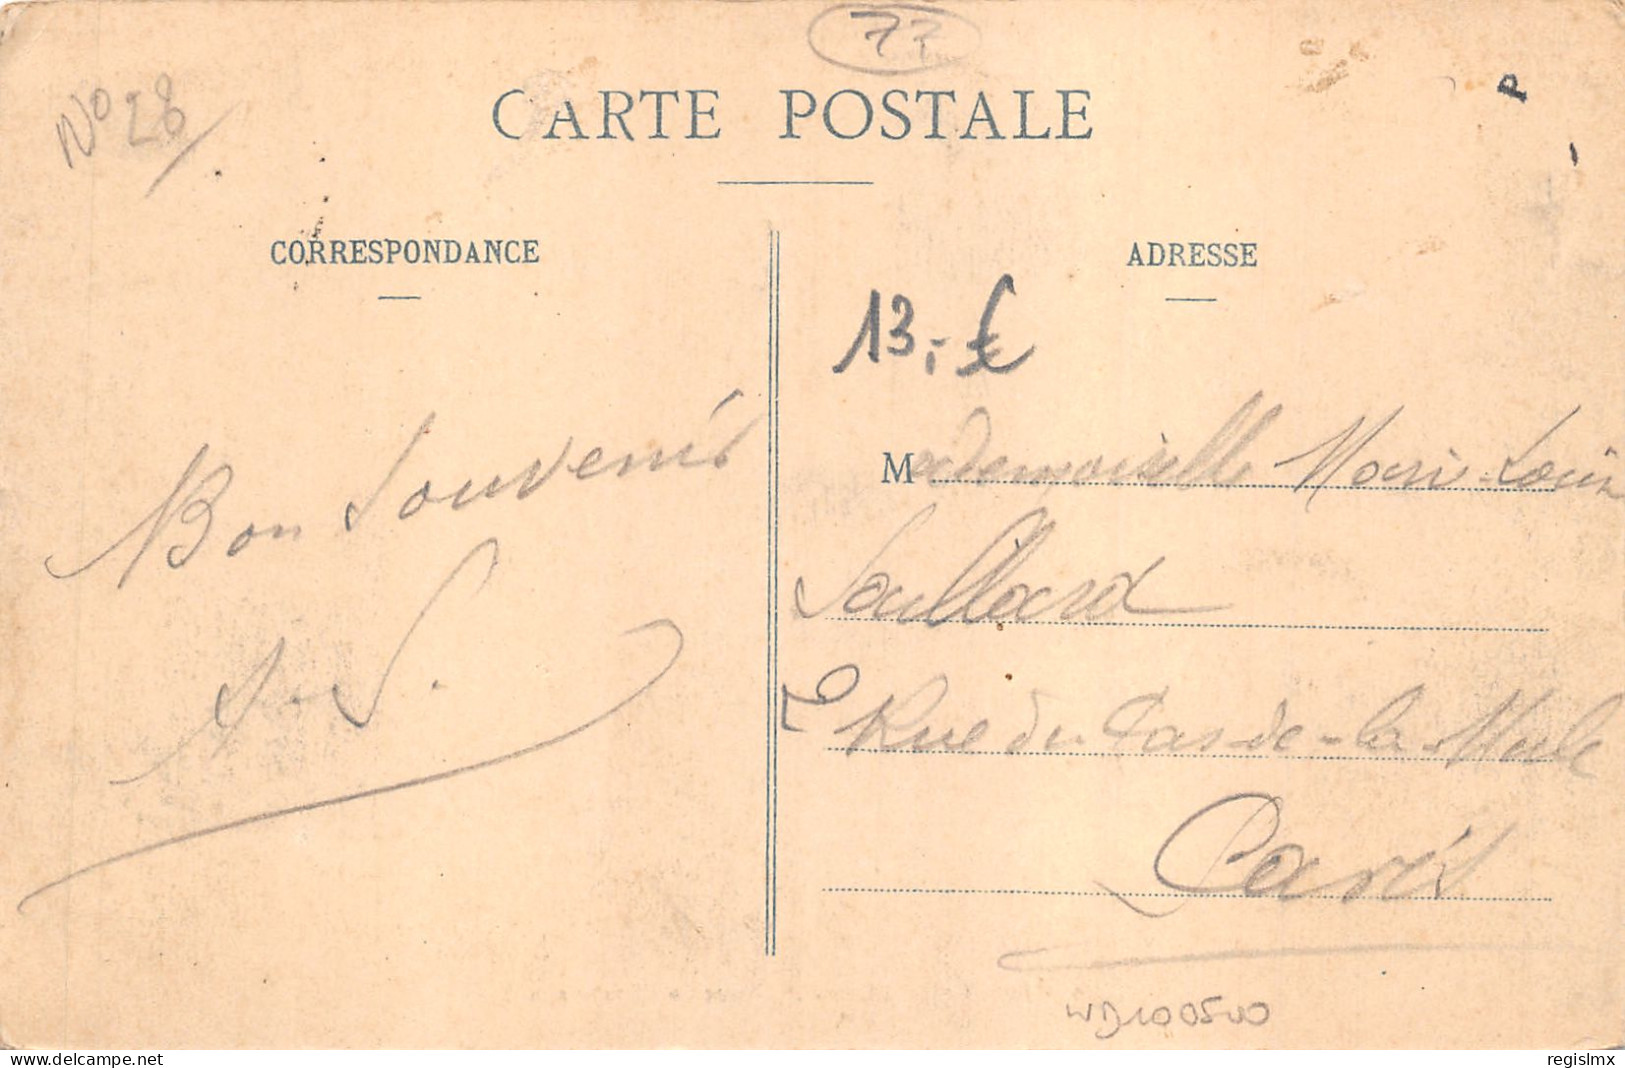 77
N° 28
CARTE POSTALE
P
CORRESPONDANCE
ADRESSE
13,-€
Mademoiselle Marie-Louise
Saillard
Bon Souvenir
A.S.
Rue du Pas-de-la-Mule
Paris
WD100500
delcampe.net
regislmx